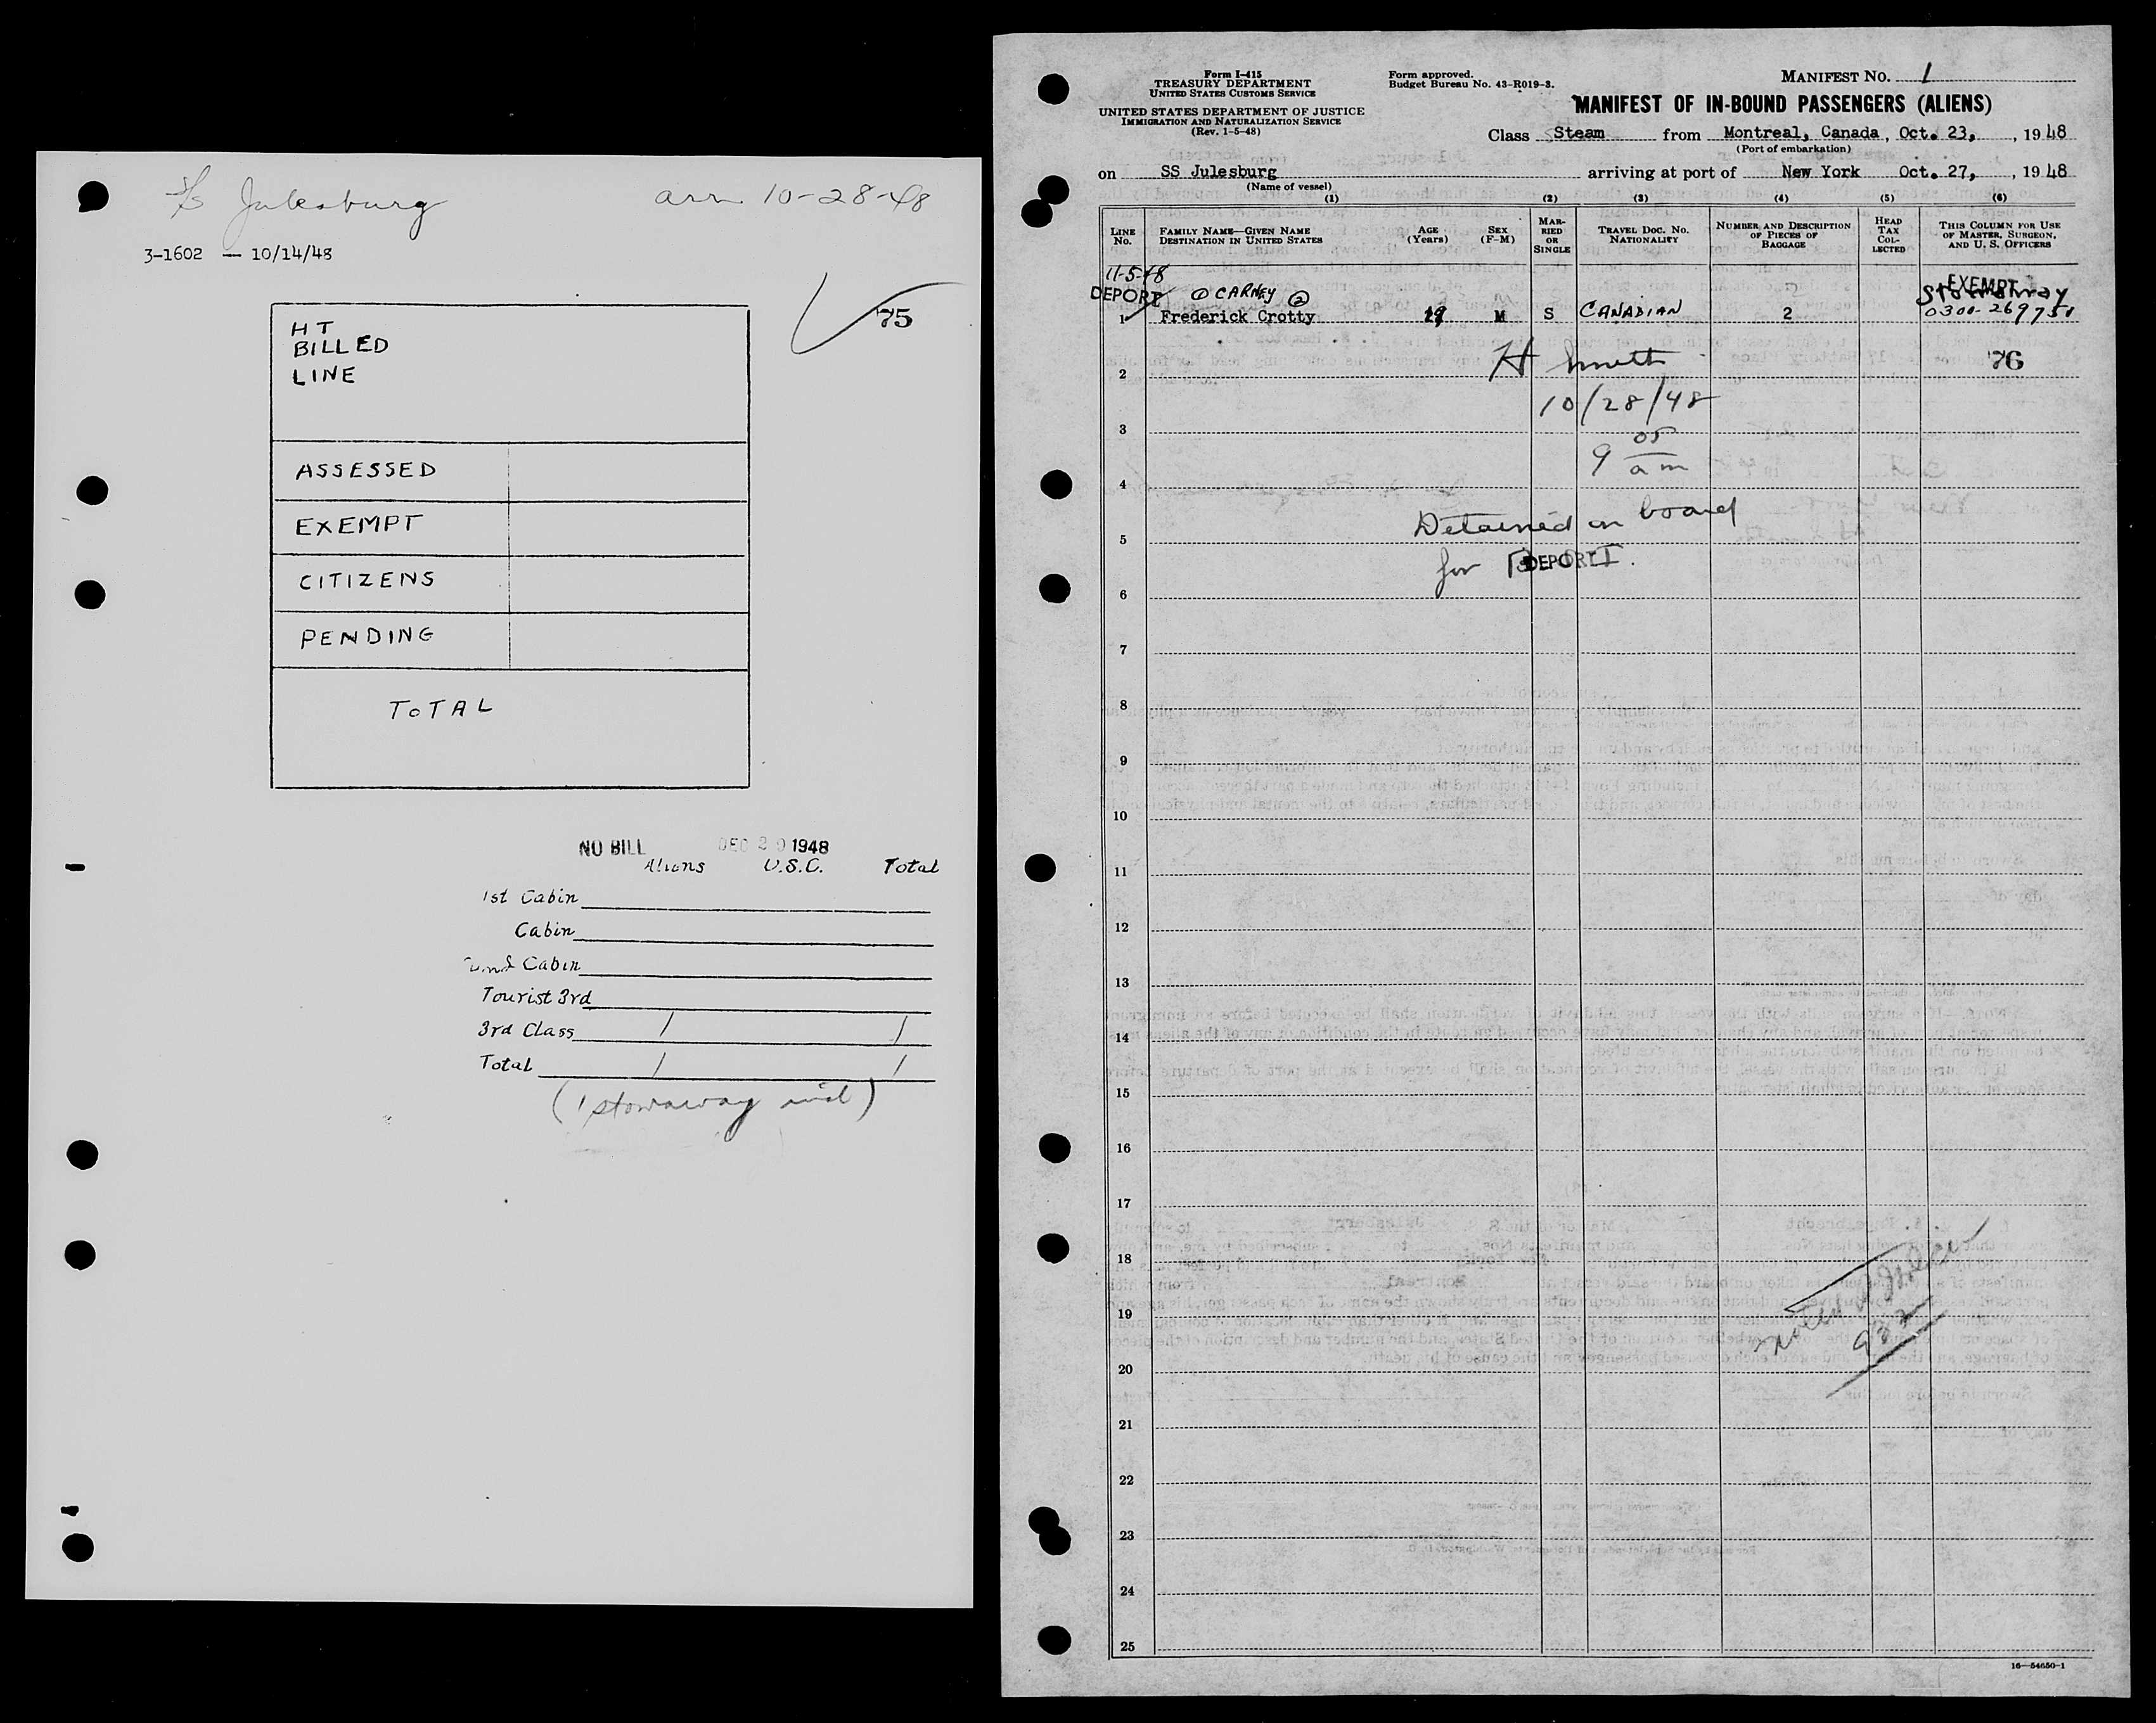 Julesburg arr 10-28-48
3-1602 — 10/14/48
75
HT
BILLED
LINE
ASSESSED
EXEMPT
CITIZENS
PENDING
TOTAL
NO BILL DEC 20 1948
Aliens U.S.C. Total
1st Cabin
Cabin
Cabin
Tourist 3rd
3rd Class 1 1
Total 1 1
(1 stowaway incl)
Form I-415
TREASURY DEPARTMENT
UNITED STATES CUSTOMS SERVICE
UNITED STATES DEPARTMENT OF JUSTICE
IMMIGRATION AND NATURALIZATION SERVICE
(Rev. 1-5-48)
Form approved.
Budget Bureau No. 43-R019-3.
MANIFEST NO. 1
MANIFEST OF IN-BOUND PASSENGERS (ALIENS)
Class Steam from Montreal, Canada, Oct. 23, , 1948
(Port of embarkation)
on SS Julesburg arriving at port of New York Oct. 27, , 1948
(Name of vessel)
(1) (2) (3) (4) (5) (6)
LINE No. FAMILY NAME—GIVEN NAME DESTINATION IN UNITED STATES AGE (Years) SEX (F-M) MARRIED OR SINGLE TRAVEL DOC. NO. NATIONALITY NUMBER AND DESCRIPTION OF PIECES OF BAGGAGE HEAD TAX COLLECTED THIS COLUMN FOR USE OF MASTER, SURGEON, AND U. S. OFFICERS
11-5-48
DEPORT ① CARNEY ② EXEMPT
Stowaway
1 Frederick Crotty 19 M S CANADIAN 2 0300-269751
76
2 H Smith
10/28/48
3
9 05 am
4
Detained on board
5
for DEPORT.
6
7
8
9
10
11
12
13
14
15
16
17
18
19
932
20
21
22
23
24
25
16—54650-1